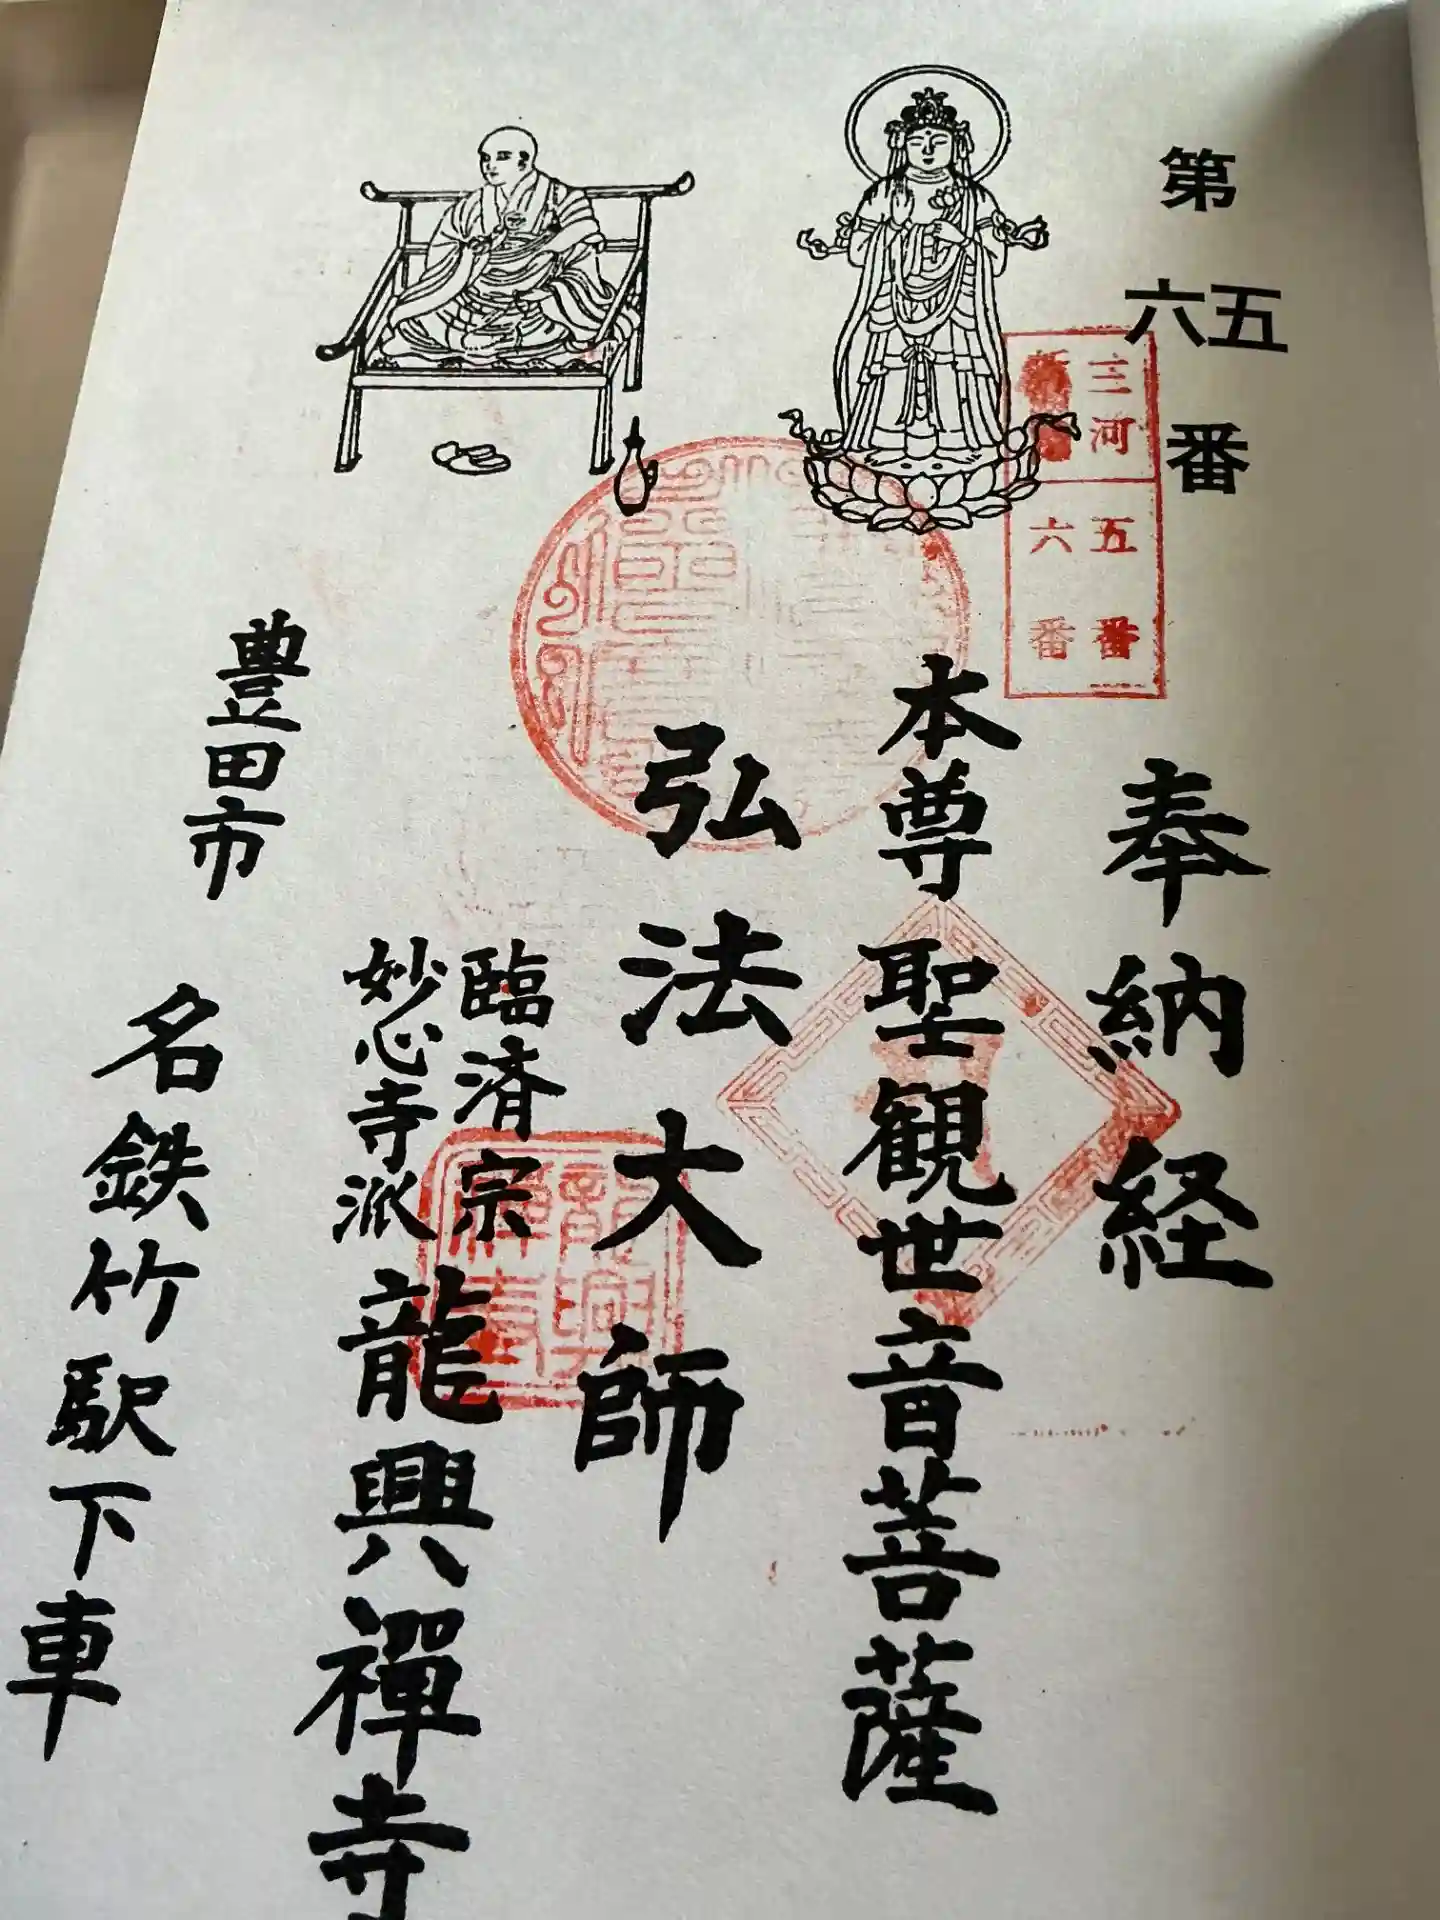 第五六番
三河
五番
六番
奉納経
本尊聖観世音菩薩
弘法大師
臨済宗
妙心寺派
龍興禪寺
豊田市
名鉄竹駅下車